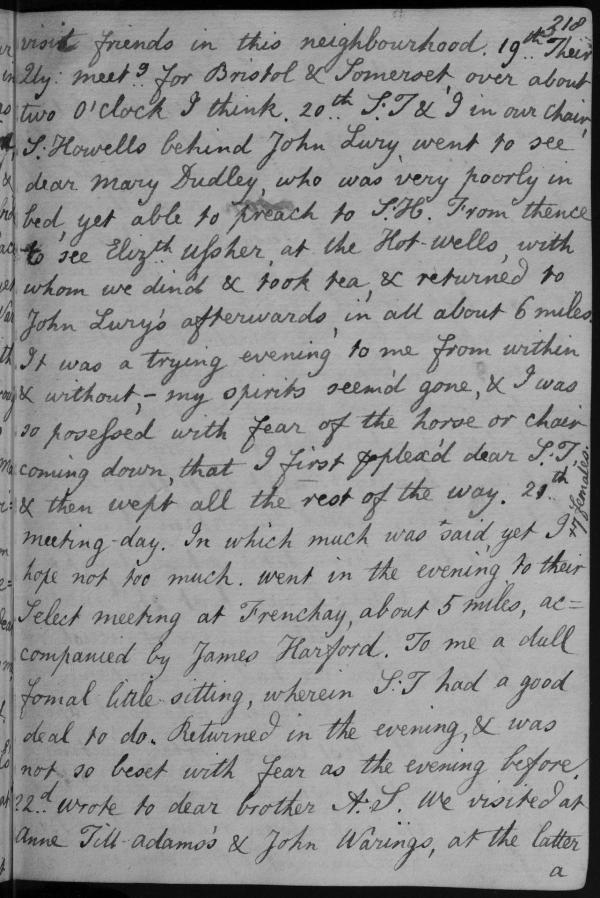 218
visit friends in this neighbourhood. 19th.. Their
Qly: meetg. for Bristol & Somerset, over about
two O'clock I think. 20th.. S:T & I in our chair,
S:Howells behind John Lury, went to see
dear Mary Dudley, who was very poorly in
bed, yet able to preach to S:H. From thence
to see Elizth.. Ussher, at the Hot-wells, with
whom we dind & took tea, & returned to
John Lury's afterwards, in all about 6 miles.
It was a trying evening to me from within
& without,- my spirits seem'd gone, & I was
so possessed with fear of the horse or chair
coming down, that I first pplex'd dear S:T,
& then wept all the rest of the way. 21th..
meeting-day. In which much was +said, yet I
+7 females.
hope not too much. went in the evening to their
Select meeting at Frenchay, about 5 miles, ac=
companied by James Harford. To me a dull
fomal little sitting, wherein S:T had a good
deal to do. Returned in the evening, & was
not so beset with fear as the evening before.
22..d wrote to dear brother A.S. We visited at
Anne Till-adams's & John Warings, at the latter
a